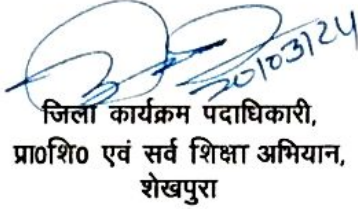 20/03/24
जिला कार्यक्रम पदाधिकारी,
प्रा०शि० एवं सर्व शिक्षा अभियान,
शेखपुरा